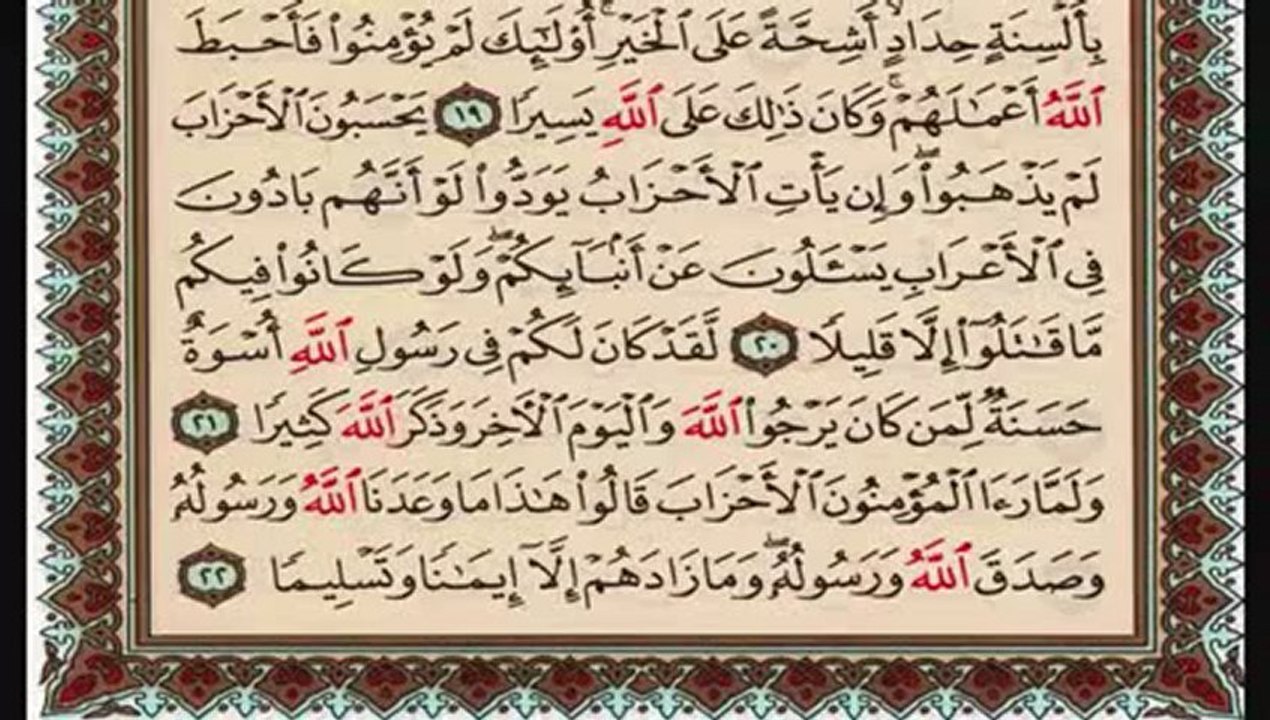 بِأَلْسِنَةٍ حِدَادٍ أَشِحَّةً عَلَى ٱلْخَيْرِ ۚ أُو۟لَـٰٓئِكَ لَمْ يُؤْمِنُوا۟ فَأَحْبَطَ
ٱللَّهُ أَعْمَـٰلَهُمْ ۚ وَكَانَ ذَٰلِكَ عَلَى ٱللَّهِ يَسِيرًا ١٩ يَحْسَبُونَ ٱلْأَحْزَابَ
لَمْ يَذْهَبُوا۟ ۖ وَإِن يَأْتِ ٱلْأَحْزَابُ يَوَدُّوا۟ لَوْ أَنَّهُم بَادُونَ
فِى ٱلْأَعْرَابِ يَسْـَٔلُونَ عَنْ أَنۢبَآئِكُمْ ۖ وَلَوْ كَانُوا۟ فِيكُم
مَّا قَـٰتَلُوٓا۟ إِلَّا قَلِيلًا ٢٠ لَّقَدْ كَانَ لَكُمْ فِى رَسُولِ ٱللَّهِ أُسْوَةٌ
حَسَنَةٌ لِّمَن كَانَ يَرْجُوا۟ ٱللَّهَ وَٱلْيَوْمَ ٱلْـَٔاخِرَ وَذَكَرَ ٱللَّهَ كَثِيرًا ٢١
وَلَمَّا رَءَا ٱلْمُؤْمِنُونَ ٱلْأَحْزَابَ قَالُوا۟ هَـٰذَا مَا وَعَدَنَا ٱللَّهُ وَرَسُولُهُۥ
وَصَدَقَ ٱللَّهُ وَرَسُولُهُۥ ۚ وَمَا زَادَهُمْ إِلَّآ إِيمَـٰنًا وَتَسْلِيمًا ٢٢